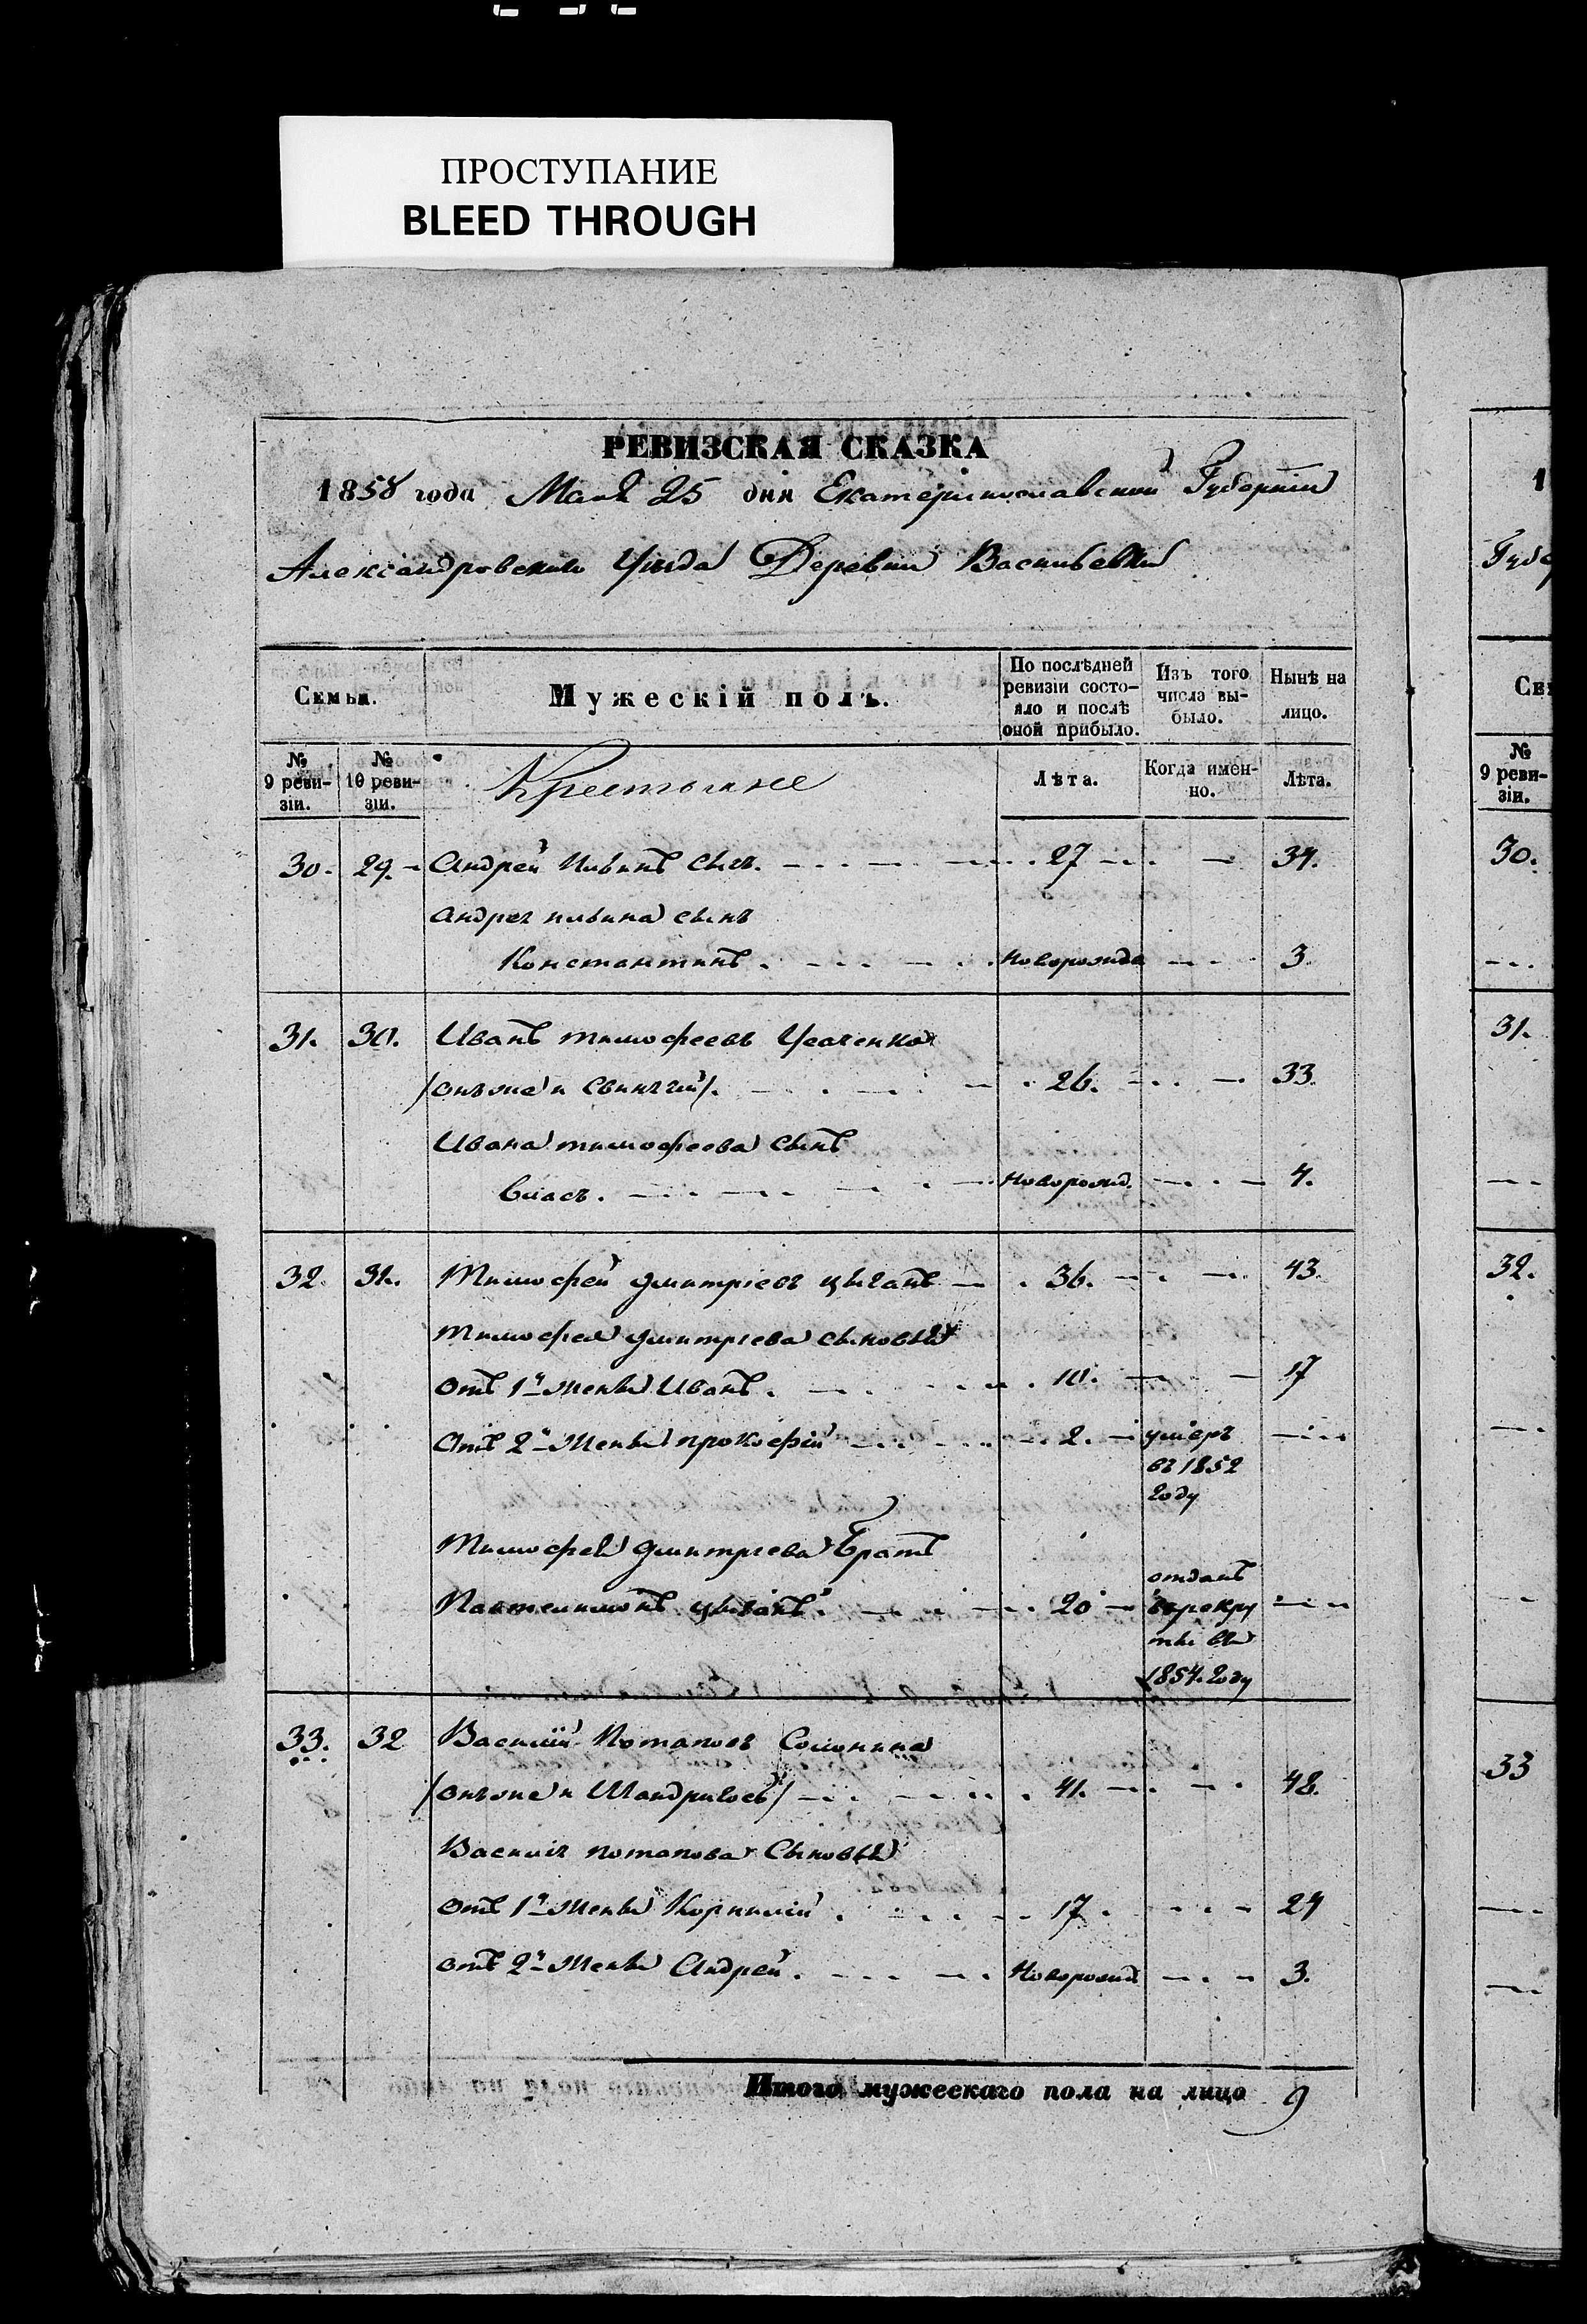 ПРОСТУПАНИЕ
BLEED THROUGH
РЕВИЗСКАЯ СКАЗКА
1858 года Мая 25 дня Екатеринославской Губерніи
Александровскаго Уѣзда Деревни Васильевки
Семья.
Мужескій полъ.
По послѣдней ревизіи состо-
яло и послѣ
оной прибыло.
Изъ того
числа вы-
было.
Нынѣ на
лицо.
№
9 реви-
зіи.
№
10 реви-
зіи.
Крестьяне
Лѣта.
Когда имен-
но.
Лѣта.
30. 29. Андрей сынъ. 27 34.
Андрея сынъ
Константинъ. новорожд 3.
31. 30. Иванъ тимофеевъ Усаченко
(онъ же и ) 26. 33.
Ивана тимофеева сынъ
Власъ. новорожд. 4.
32. 31. Тимофей дмитріевъ цыганъ 36. 43.
Тимофея дмитріева сыновья
отъ 1й жены Иванъ. 10. 17
отъ 2й жены прокофій 2. умеръ
въ 1852
году
Тимофея дмитріева Братъ
Пантелимонъ цыганъ. 20 отданъ
въ рекру
ты въ
1854. году
33. 32 Василій Потаповъ
(онъ же и ) 41. 48.
Василія потапова Сыновья
отъ 1й жены Корнилій. 17. 24
отъ 2й жены Андрей. Новорожд 3.
Итого мужескаго пола на лицо 9
1
Губер
Сем
№
9 реви-
зіи.
30.
31.
32.
33